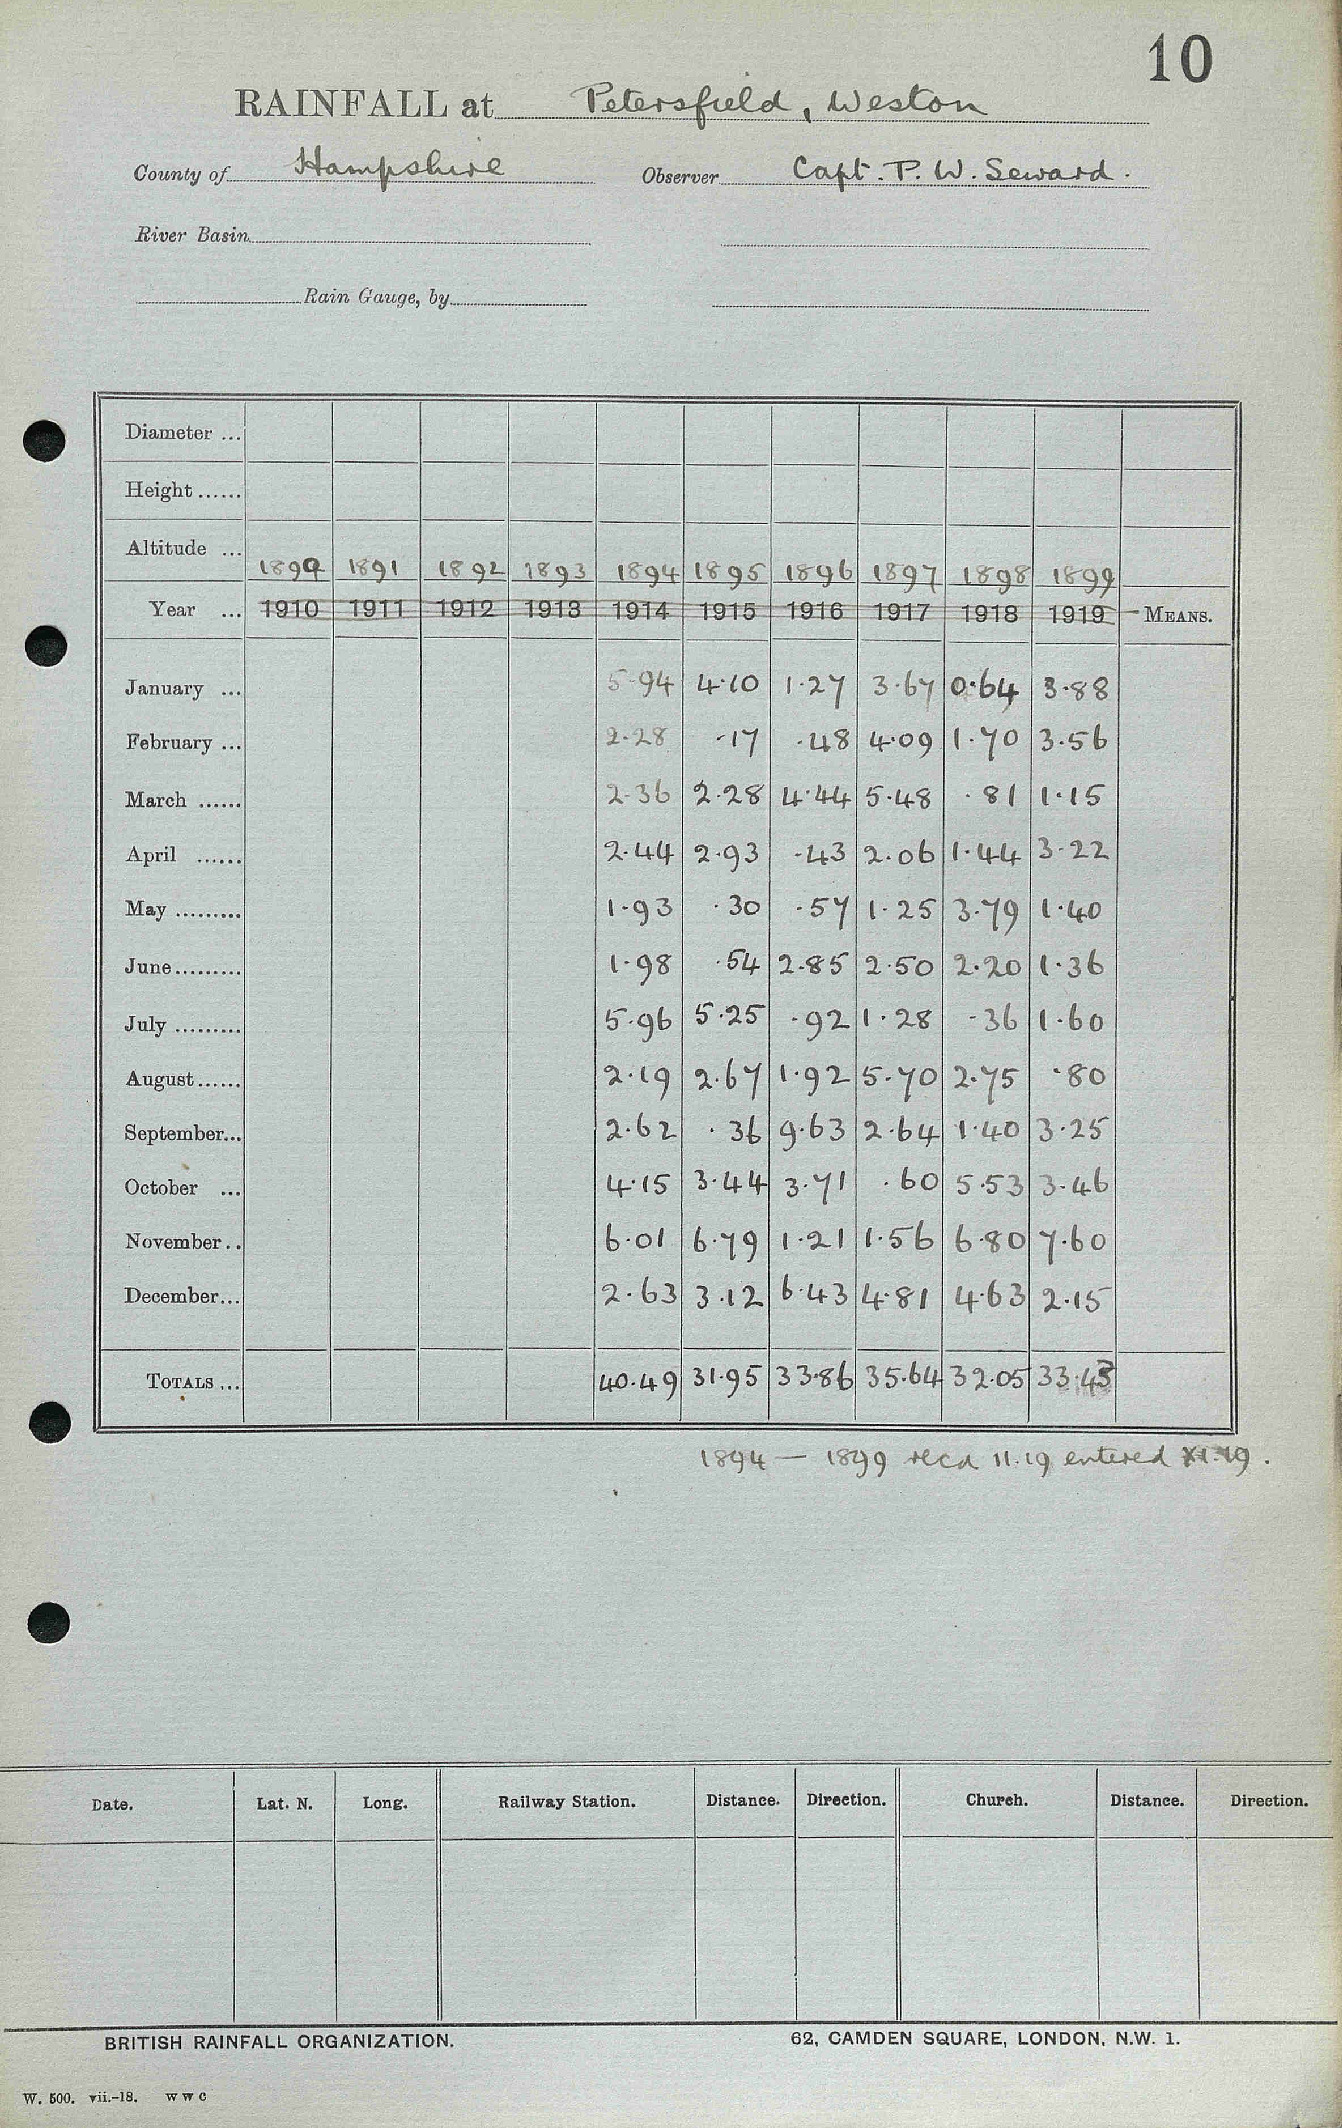 10
RAINFALL at Petersfield, Weston
County of Hampshire Observer Capt. P. W. Seward.
River Basin
Rain Gauge, by
Diameter ...
Height ......
Altitude ...
1890 1891 1892 1893 1894 1895 1896 1897 1898 1899
Year ... 1910 1911 1912 1913 1914 1915 1916 1917 1918 1919 MEANS.
January ... 5.94 4.10 1.27 3.67 0.64 3.88
February ... 2.28 .17 .48 4.09 1.70 3.56
March ...... 2.36 2.28 4.44 5.48 .81 1.15
April ...... 2.44 2.93 .43 2.06 1.44 3.22
May ......... 1.93 .30 .57 1.25 3.79 1.40
June ......... 1.98 .54 2.85 2.50 2.20 1.36
July ......... 5.96 5.25 .92 1.28 .36 1.60
August ...... 2.19 2.67 1.92 5.70 2.75 .80
September... 2.62 .36 9.63 2.64 1.40 3.25
October ... 4.15 3.44 3.71 .60 5.53 3.46
November .. 6.01 6.79 1.21 1.56 6.80 7.60
December... 2.63 3.12 6.43 4.81 4.63 2.15
TOTALS ... 40.49 31.95 33.86 35.64 32.05 33.43
1894 — 1899 recd 11.19 entered XI.19.
Date. Lat. N. Long. Railway Station. Distance. Direction. Church. Distance. Direction.
BRITISH RAINFALL ORGANIZATION. 62, CAMDEN SQUARE, LONDON, N.W. 1.
W. 500. vii.-18. W W C